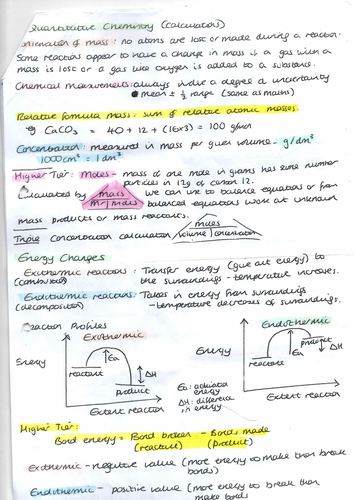 Quantitative Chemistry (Calculations)
Conservation of mass: no atoms are lost or made during a reaction.
Some reactions appear to have a change in mass if a gas with a
mass is lost or a gas like oxygen is added to a substance.
Chemical measurements: always include a degree of uncertainty
• mean ± ½ range (same as maths)
Relative formula mass: sum of relative atomic masses.
eg CaCO3 = 40 + 12 + (16x3) = 100 g/mol
Concentration: measured in mass per given volume - g/dm³
1000cm³ = 1dm³
Higher Tier: Moles - mass of one mole in grams has same number
particles in 12g of carbon 12.
Calculated by mass we can use to balance equations or from
mr moles balanced equations work out unknown
mass products or mass reactants.
moles
Triple Concentration calculation volume concentration
Energy Changes
Exothermic reactions: Transfer energy (give out energy) to
(combustion) the surroundings - temperature increases.
Endothermic reactions: Takes in energy from surroundings
(decomposition) - temperature decreases of surroundings.
Reaction Profiles
Exothermic
Endothermic
Energy
reactant
Ea
ΔH
product
Extent reaction
Ea: activation
energy
ΔH: difference
in energy
Energy
reactant
Ea
product
ΔH
Extent reaction
Higher Tier:
Bond energy = Bond broken - Bonds made
(reactant) (product)
Exothermic - negative value (more energy to make than break
bonds)
Endothermic - positive value (more energy to break than
make bonds